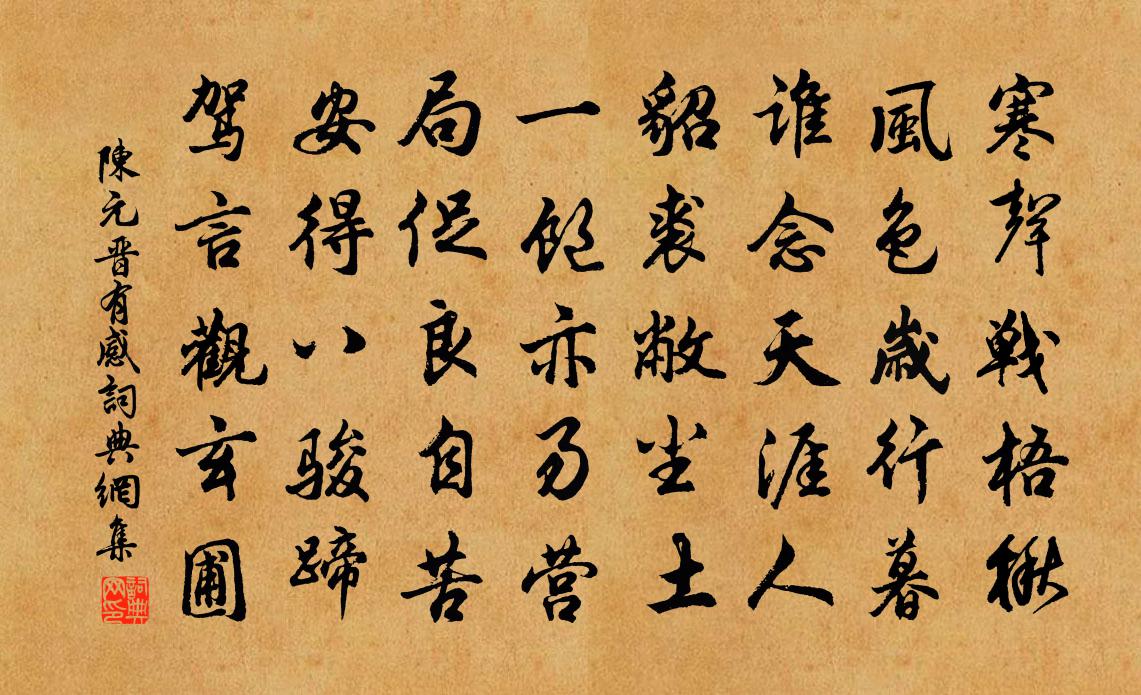 寒聲戰梧楸
風色歲行暮
誰念天涯人
貂裘敝尘土
一飽亦易营
局促良自苦
安得八骏蹄
驾言觀玄圃
陳元晋有感詞典網集
詞典网印